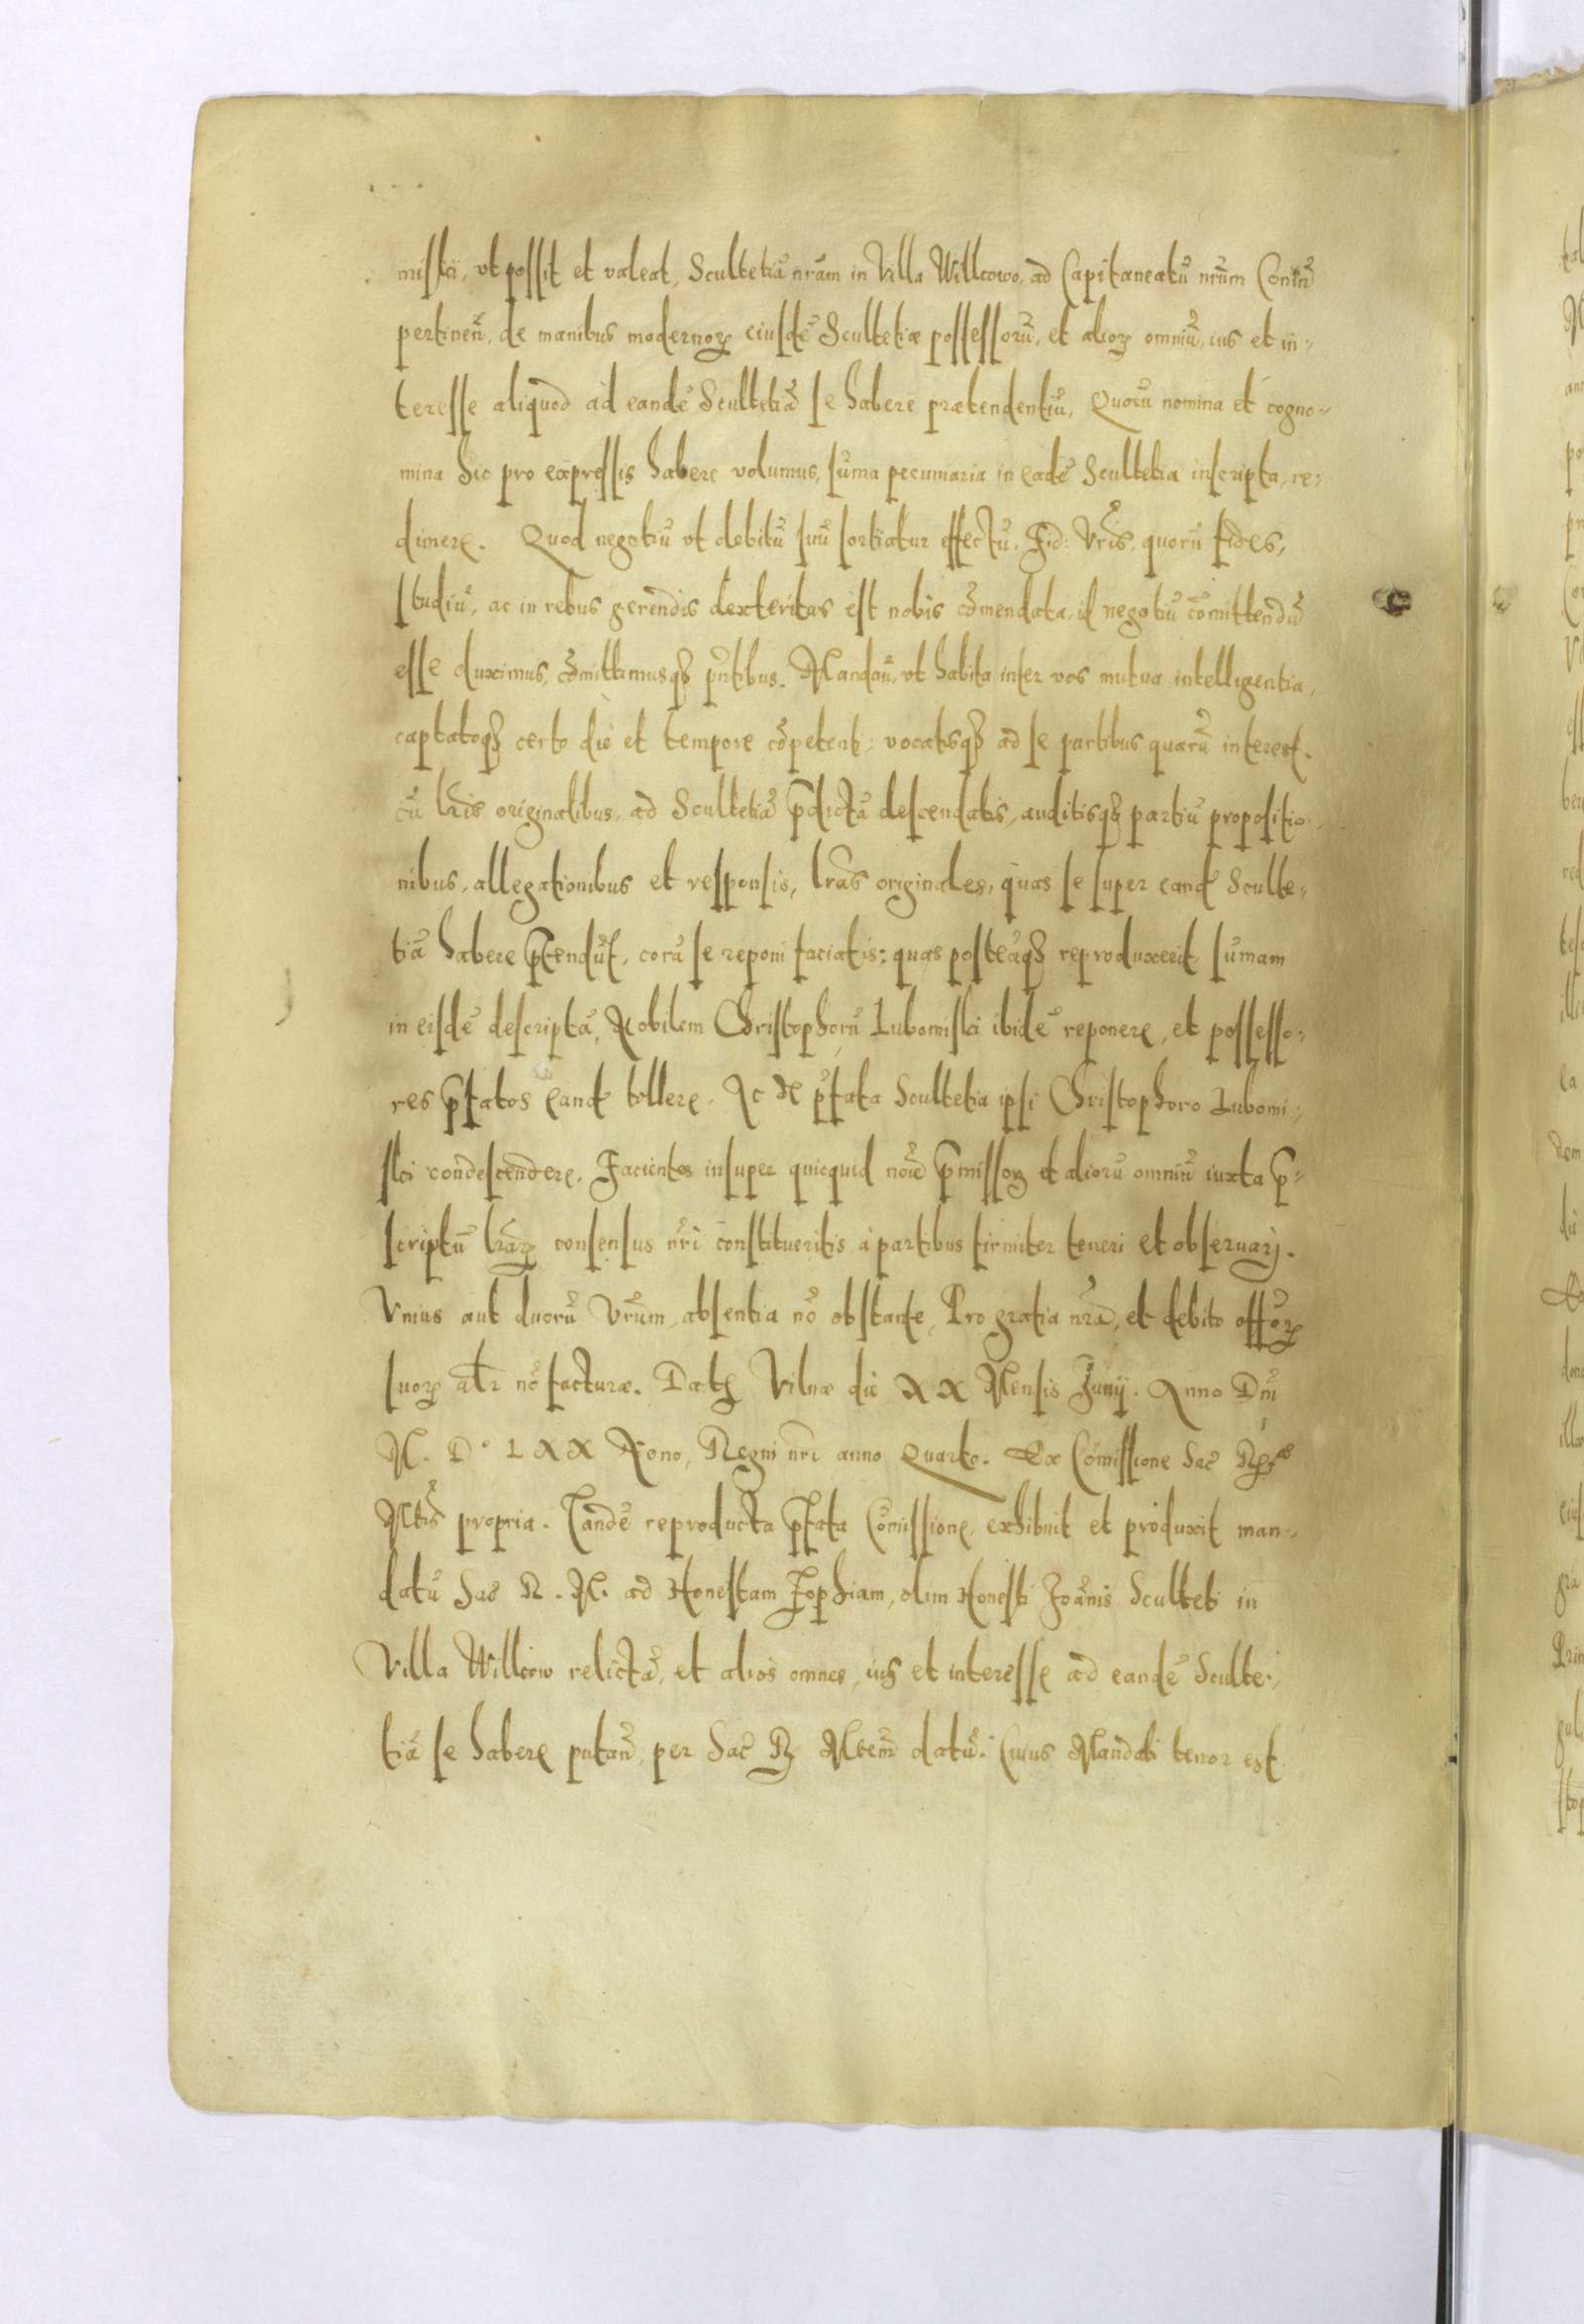 miski, vt possit et valeat, Scultetiã nrãm in Villa Willcowo, ad Capitaneatũ nrũm Conin̄
pertinen̄, de manibus modernoꝝ eiusdẽ Scultetiæ possessorũ, et alioꝝ omniũ, ius et in⸗
teresse aliquod ad eandẽ Scultetiã se habere prætendentiũ, Quorũ nomina et cogno⸗
mina hic pro expressis habere volumus, sũma pecuniaria in eadẽ Scultetia inscripta, re⸗
dimere. Quod negotiũ vt debitũ suũ sortiatur effectũ, Fid: Vrīs, quorũ fides,
studiũ, ac in rebus gerendis dexteritas est nobis cõmendata, id negotiũ cõmittendũ
esse duximus, cõmittimusqꝫ pñtibus. Mandañ, vt habita inter vos mutua intelligentia,
captatoqꝫ certo die et tempore cõpetenti, vocatisqꝫ ad se partibus quarũ interest.
cũ lrīs originalibus, ad Scultetiã p̄dictã descendatis, auditisqꝫ partiũ propositio⸗
nibus, allegationibus et responsis, lrās originales, quas se super eand̄ Sculte⸗
tiã habere p̄tendũt, corã se reponi faciatis; quas posteaqꝫ reproduxerit, sũmam
in eisdẽ descriptã, Nobilem Christophorũ Lubomiski ibidẽ reponere, et possesso⸗
res p̄fatos eand̄ tollere. Ac de p̄fata Scultetia ipsi Christophoro Lubomi⸗
ski condescendere. Facientes insuper quicquid noīe p̄missoꝝ et aliorũ omniũ iuxta p̄⸗
scriptũ lrāꝝ consensus nr̄i constitueritis à partibus firmiter teneri et obseruarj.
Vnius aut duorũ Vrūm, absentia nõ obstante, Pro gratia nr̄a, et debito offõꝝ
suoꝝ alr̄ nõ facturæ. Datꝫ Vilnæ die XX Mensis Junij. Anno Dn̄i
M. D. LXX Nono, Regni nr̄i anno Quarto. Ex Cõmissione Sac̄ Rgꝭ
Mtis̄ propria. Tandẽ reproducta p̄fata Cõmissione, exhibuit et produxit man⸗
datũ Sac̄ R. M. ad Honestam Zophiam, olim Honesti Joãnis Sculteti in
Villa Willcow relictã, et alios omnes, ius et interesse ad eandẽ Sculte⸗
tiã se habere putañ, per Sac̄ R. Mtem̄ datũ. Cuius Mandati tenor est